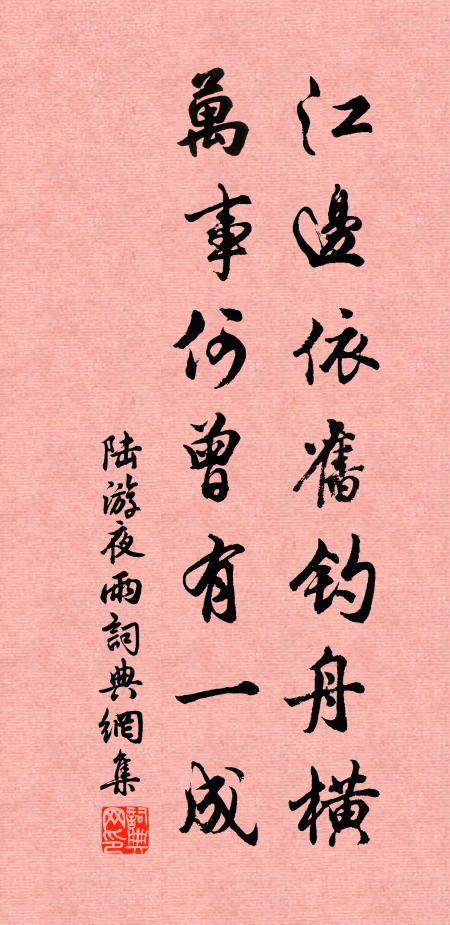 江邊依舊釣舟橫
萬事何曾有一成
陸游夜雨詞典網集
詞典网印